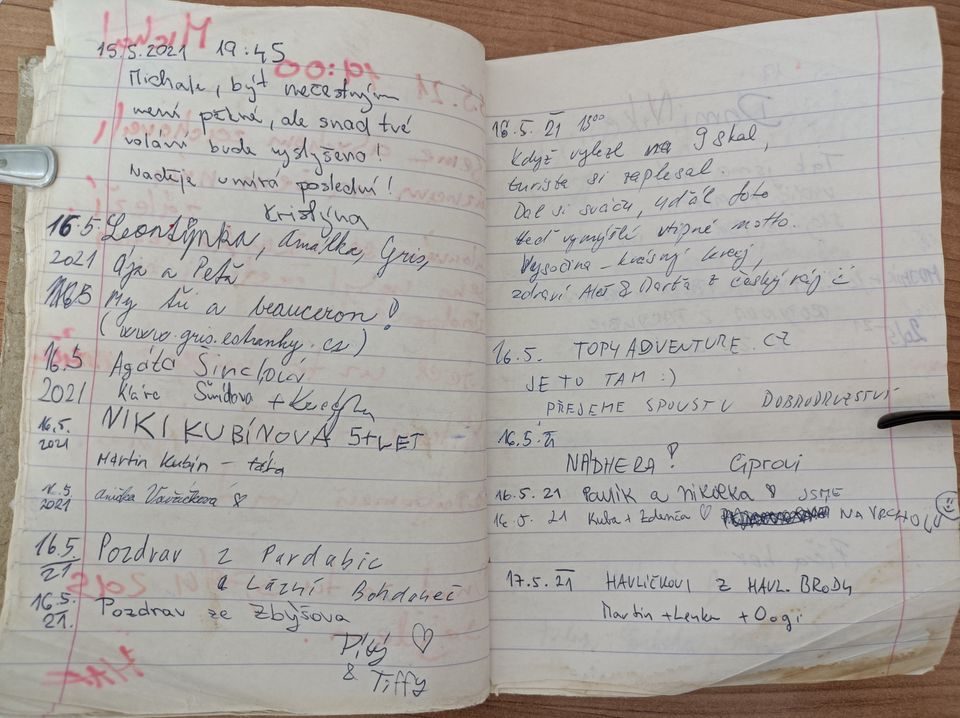 15.5.2021 19:45
Michale, být nečestným
není pěkné, ale snad tvé
volání bude vyslyšeno!
Naděje umírá poslední!
Kristýna
16.5. Leontýnka, Amálka, Gris,
2021 Ája a Peťa
My tři a beauceron!
(www.gris.estranky.cz)
16.5 Agáta
2021 Klára +
16.5. NIKI KUBÍNOVÁ 5+LET
2021 Martin Kubín - táta
16.5. Anička
2021
16.5. Pozdrav z Pardubic
21 a Lázní Bohdaneč
16.5. Pozdrav ze Zbýšova
21.
& Tiffy
16.5.21 15:00
Když vylezl na 9 skal,
turista si zaplesal.
Dal si svačinu, udělal foto
teď vymýšlí vtipné motto.
Vysočina - krásný kraj,
zdraví Aleš & Marťa z český ráj
16.5. TOPYADVENTURE.CZ
JE TO TAM :)
PŘEJEME SPOUSTU DOBRODRUŽSTVÍ
16.5.21
NÁDHERA! Ciprovi
16.5.21 Pavlík a Nikolka JSME
16.5.21 Kuba + Zdenča NA VRCHOLU
17.5.21 HAVLÍČKOVI Z HAVL. BRODU
Martin + Lenka + Oogi